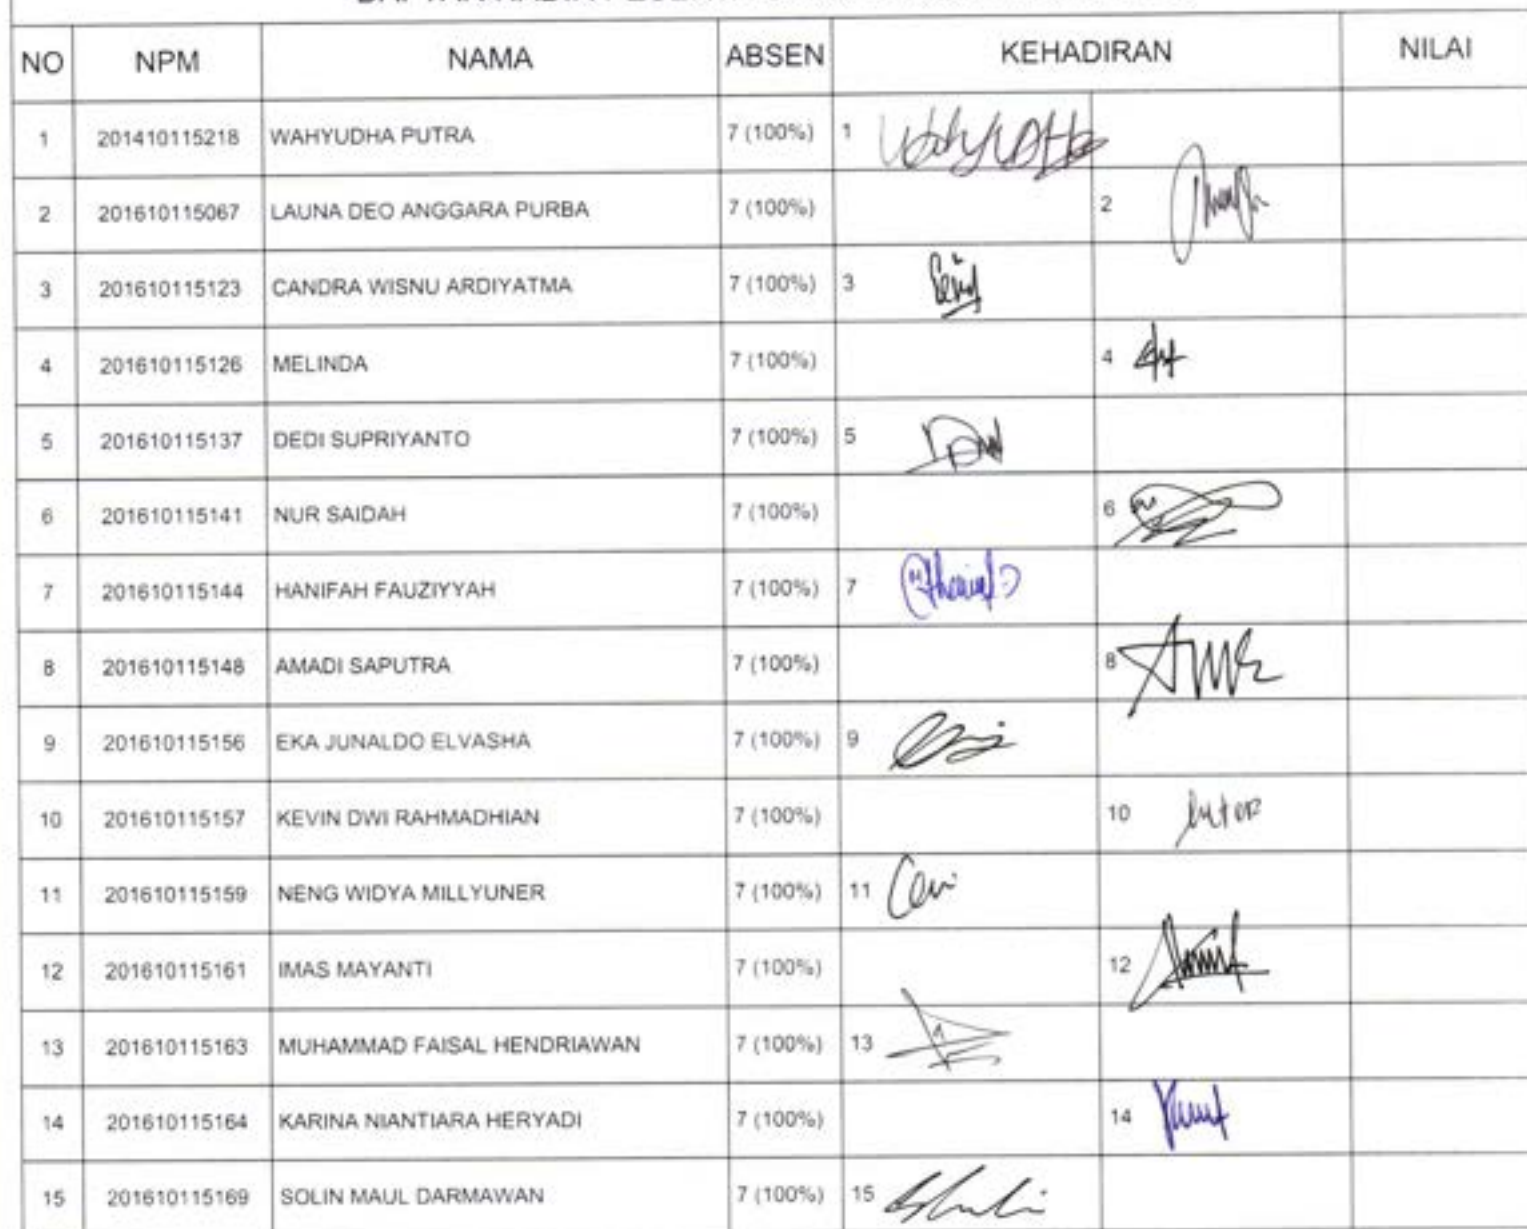 NO NPM NAMA ABSEN KEHADIRAN NILAI
1 201410115218 WAHYUDHA PUTRA 7 (100%) 1
2 201610115067 LAUNA DEO ANGGARA PURBA 7 (100%) 2
3 201610115123 CANDRA WISNU ARDIYATMA 7 (100%) 3
4 201610115126 MELINDA 7 (100%) 4
5 201610115137 DEDI SUPRIYANTO 7 (100%) 5
6 201610115141 NUR SAIDAH 7 (100%) 6
7 201610115144 HANIFAH FAUZIYYAH 7 (100%) 7
8 201610115148 AMADI SAPUTRA 7 (100%) 8
9 201610115156 EKA JUNALDO ELVASHA 7 (100%) 9
10 201610115157 KEVIN DWI RAHMADHIAN 7 (100%) 10
11 201610115159 NENG WIDYA MILLYUNER 7 (100%) 11
12 201610115161 IMAS MAYANTI 7 (100%) 12
13 201610115163 MUHAMMAD FAISAL HENDRIAWAN 7 (100%) 13
14 201610115164 KARINA NIANTIARA HERYADI 7 (100%) 14
15 201610115169 SOLIN MAUL DARMAWAN 7 (100%) 15